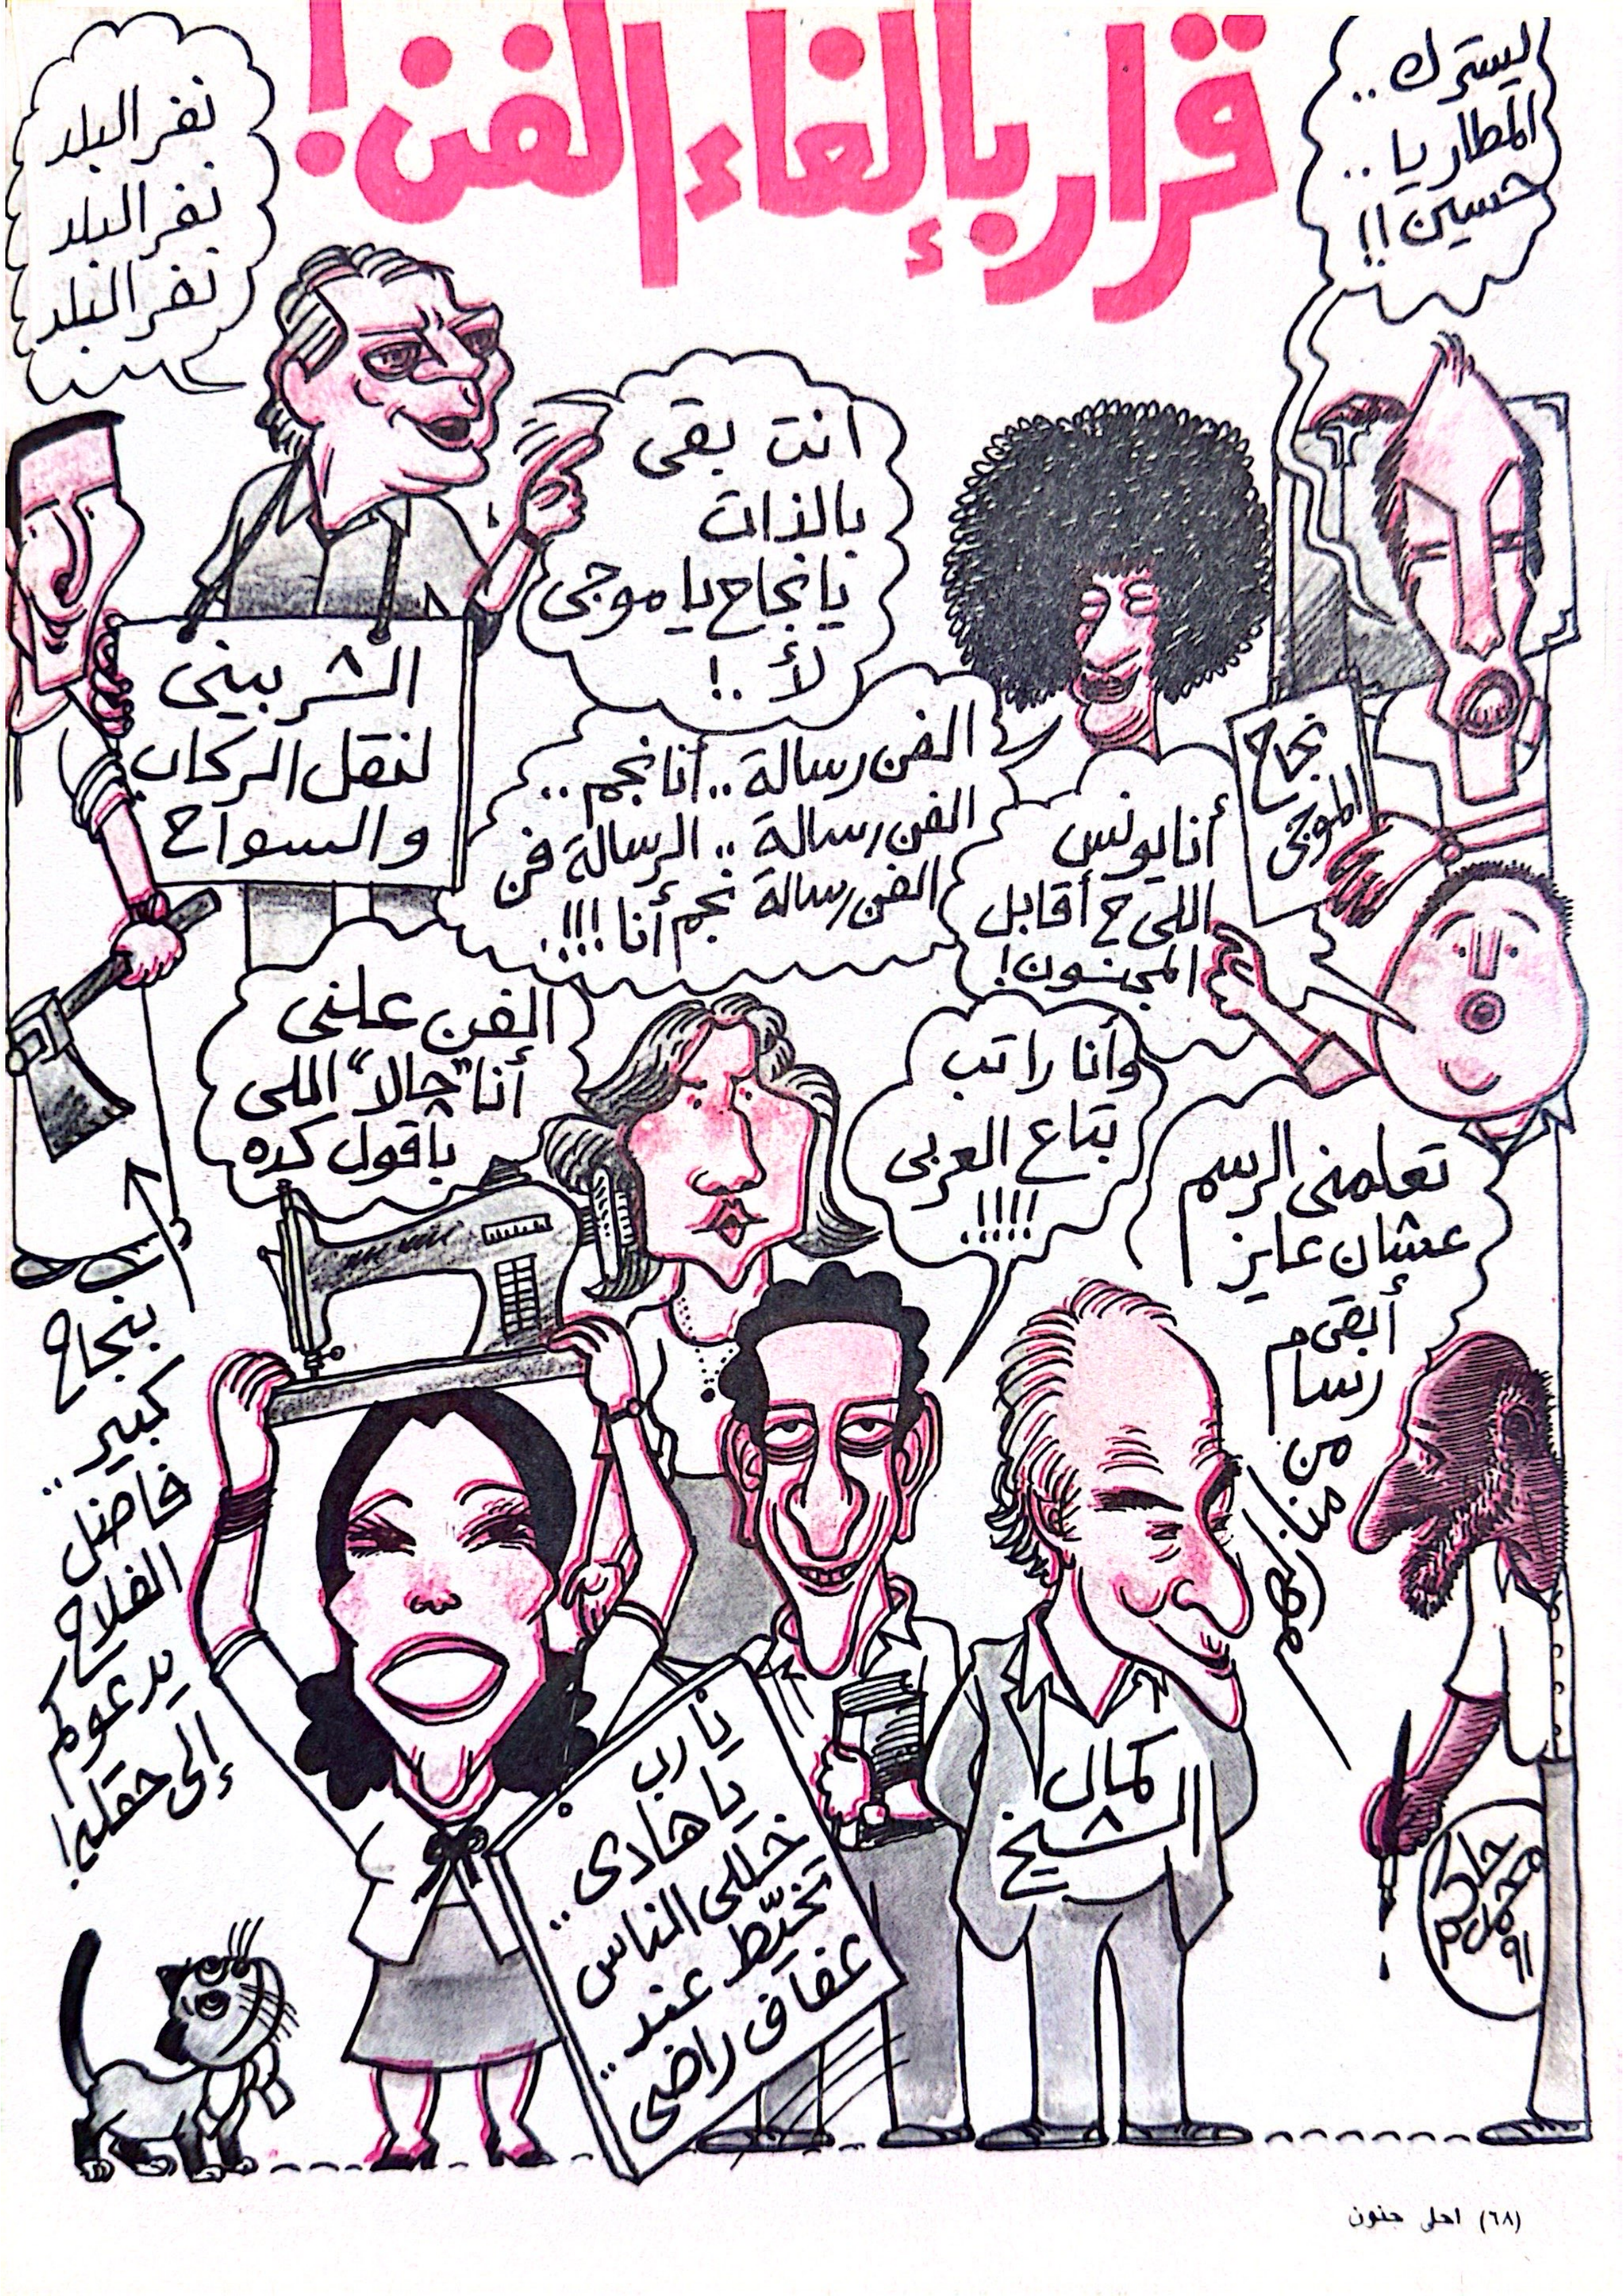 قرار بإلغاء الفن!
ليسترك ..
المطاريا ..
حسين !!
نفر البلد
نفر البلد
نفر البلد
انت بقى
بالذات
يا نجاح يا موجى
لأ ..!
الشربينى
لنقل الركاب
والسواح
نجاح
الموجى
الفن رسالة .. أنا نجم ..
الفن رسالة .. الرسالة فن
الفن رسالة نجم أنا !!!.
أنا يونس
اللى ح أقابل
المجنون!
الفن علنى
أنا "حالا" اللى
بأقول كده
وأنا راتب
بتاع العربى
!!!!.
تعلمنى الرسم
عشان عايز
أبقى م
رسام
من
منازلهم
بنجاح
كبير ..
فاضل
الفلاح
يدعوكم
إلى حقله!
يارب
يا هادى ..
خللى الناس
تخيّط عند ..
عفاف راضى
كمال
الشيخ
حاكم
محمد
٩١
(٦٨) احلى جنون